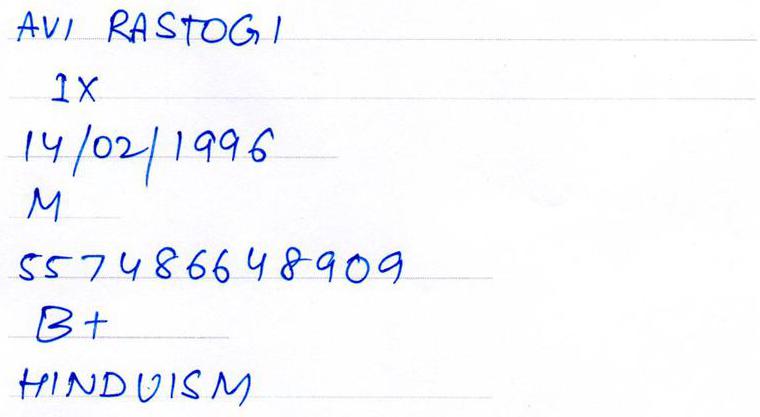 AVI RASTOGI
IX
14/02/1996
M
557486648909
B+
HINDUISM